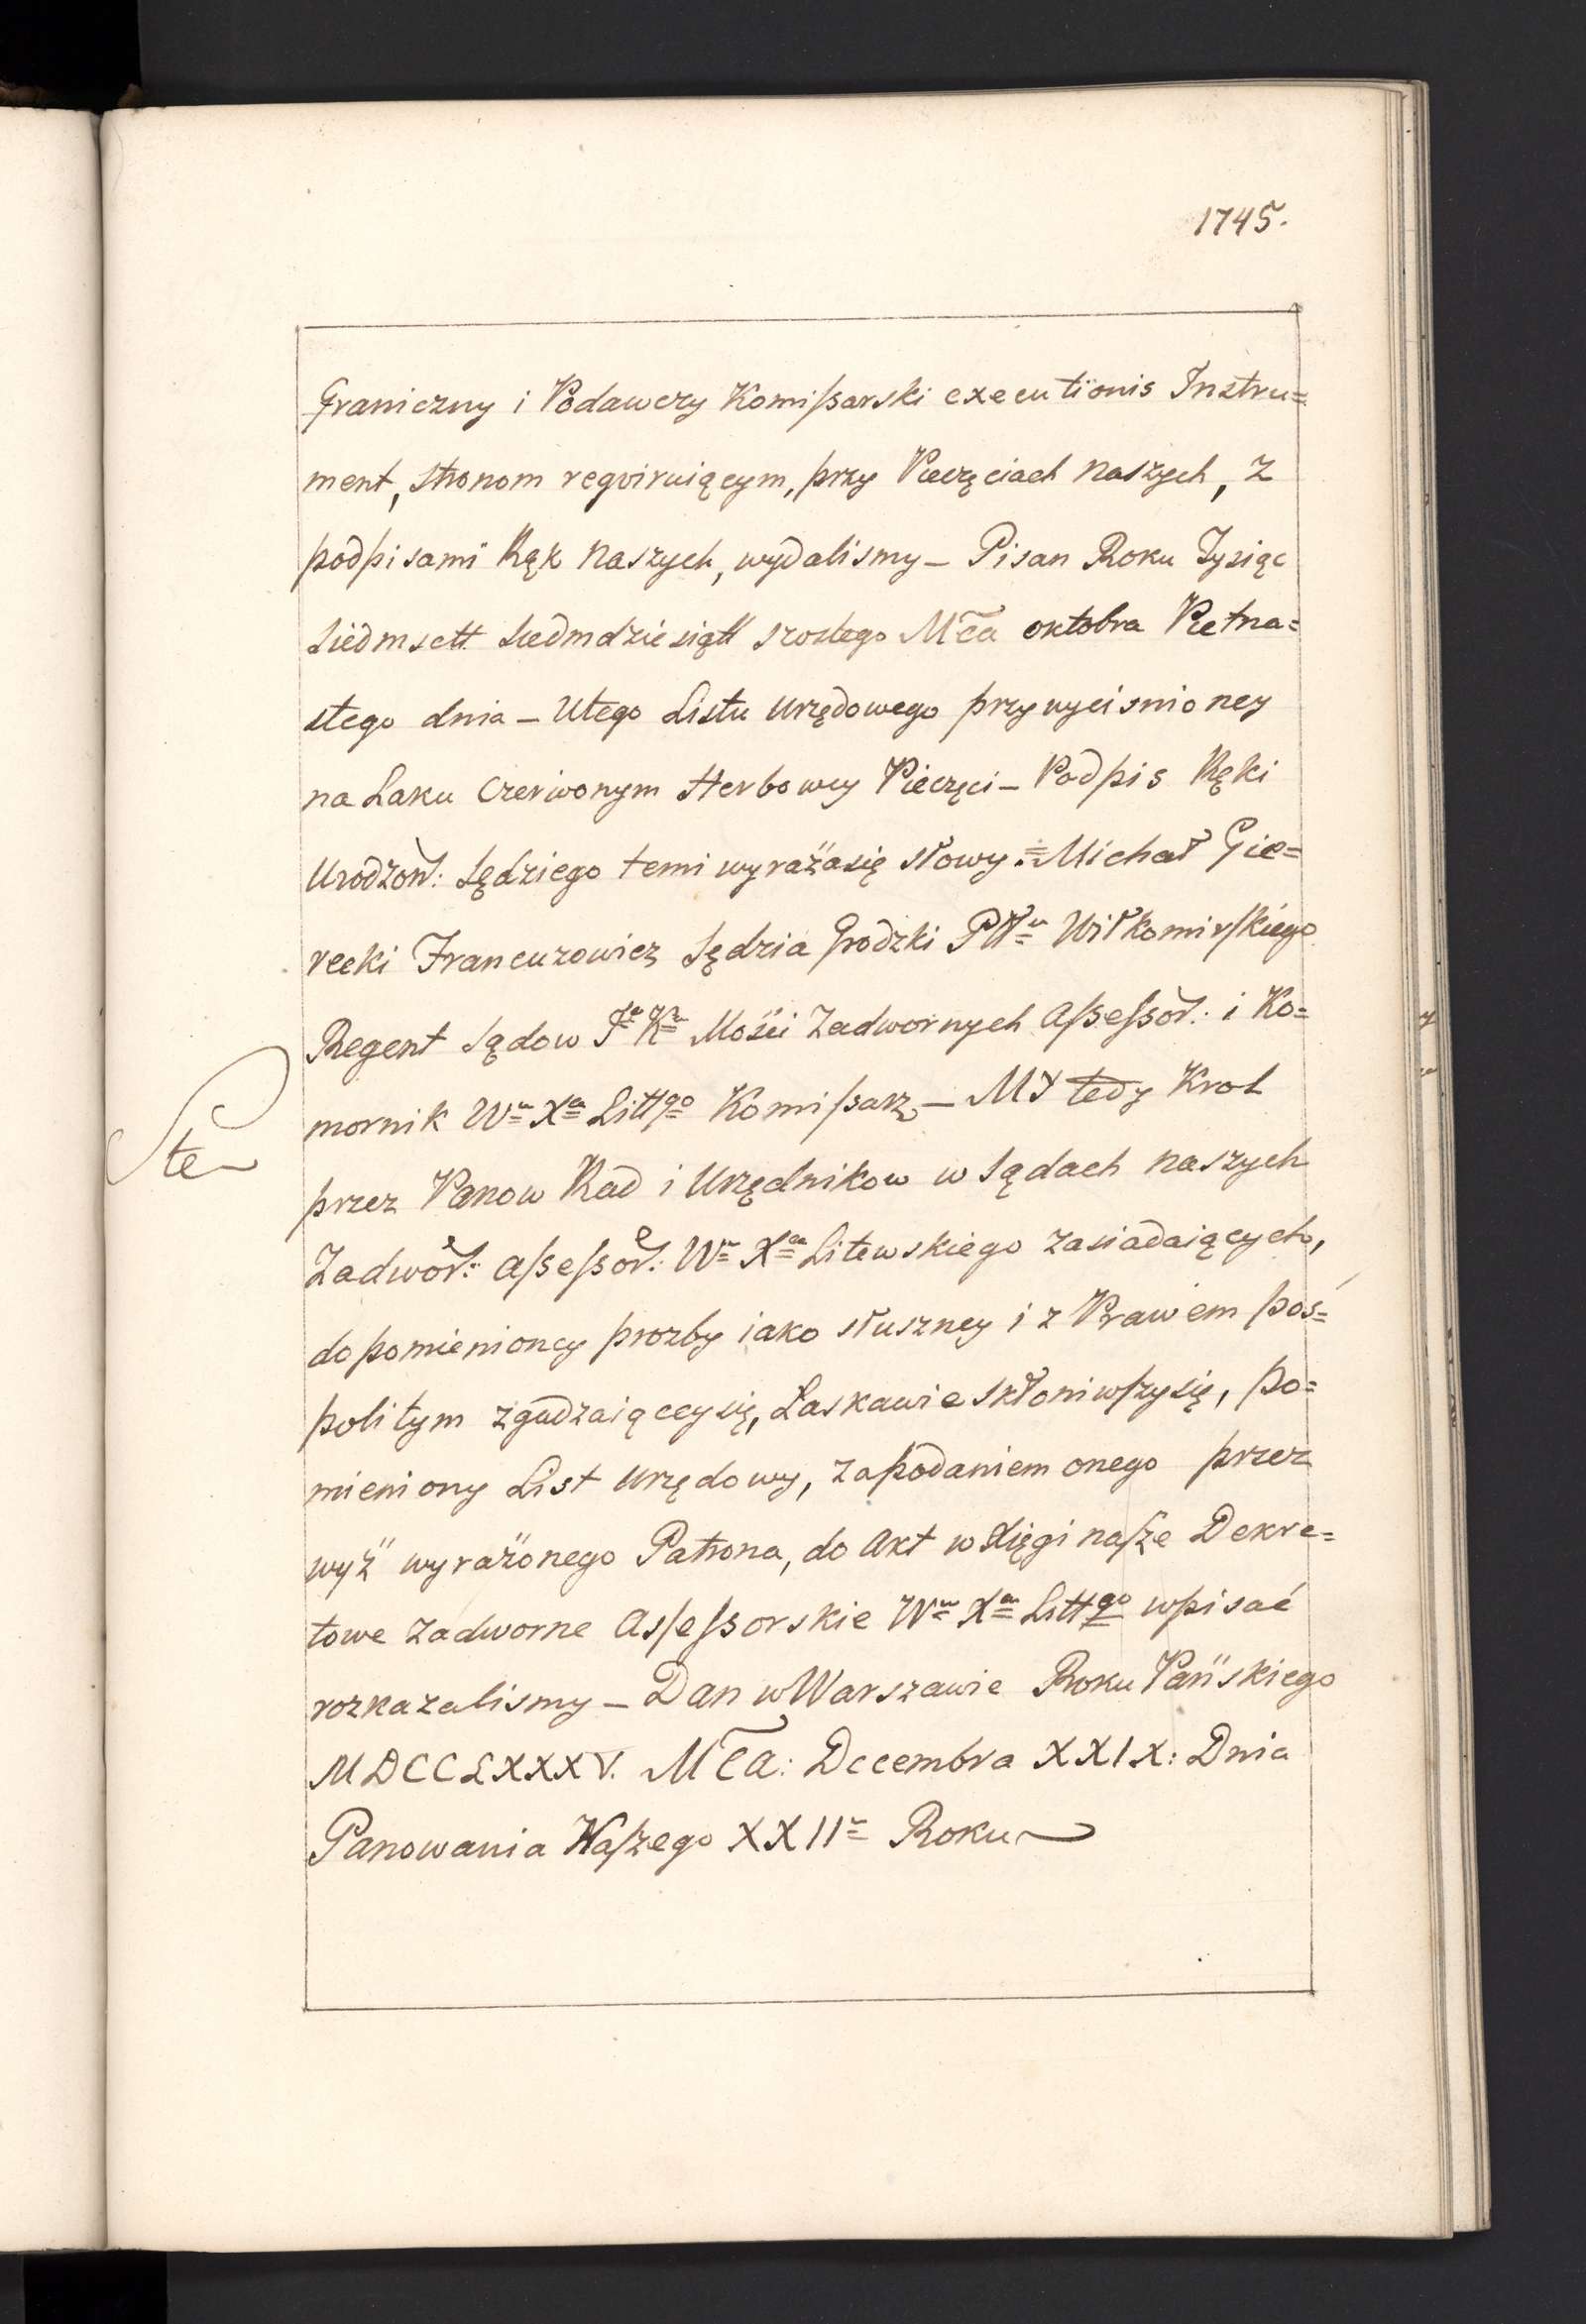 1745.
Graniczny i Podawczy Komissarski executionis Instru=
ment, stronom regviruiącym, przy Pieczęciach naszych, z
podpisami Rąk naszych, wydalismy _ Pisan Roku Tysiąc
siedmsett siedmdziesiątt szostego Mca oktobra Pietna=
stego dnia _ U tego Listu urzędowego przy wycisnioney
na Laku czerwonym Herbowey Pieczęci _ Podpis Ręki
Urodzon: Sędziego temi wyraża się słowy. = Michał Gie=
recki Francuzowicz Sędzia Grodzki Pttu Wiłkomirskiego
Regent Sądow Ja Kn Mości Zadwornych Assessor: i Ko=
mornik Wu Xa Littgo Komissarz _ MY tedy Krol
przez Panow Rad i Urzędnikow w Sądach naszych
Zadwor: Assessor: Wu Xa Litewskiego zasiadaiących,
do pomienioney prozby iako słuszney i z Prawem pos=
politym zgadzaiącey się, Laskawie skłoniwszy się, po=
mieniony List urzędowy, za podaniem onego przez
wyż wyrażonego Patrona, do Akt w Xięgi nasze Dekre=
towe zadworne Assessorskie Wu Xa Littgo wpisać
rozkazalismy _ Dan w Warszawie Roku Pańskiego
MDCCLXXXV. Mca: Decembra XXIX: Dnia
Panowania Naszego XXII Roku